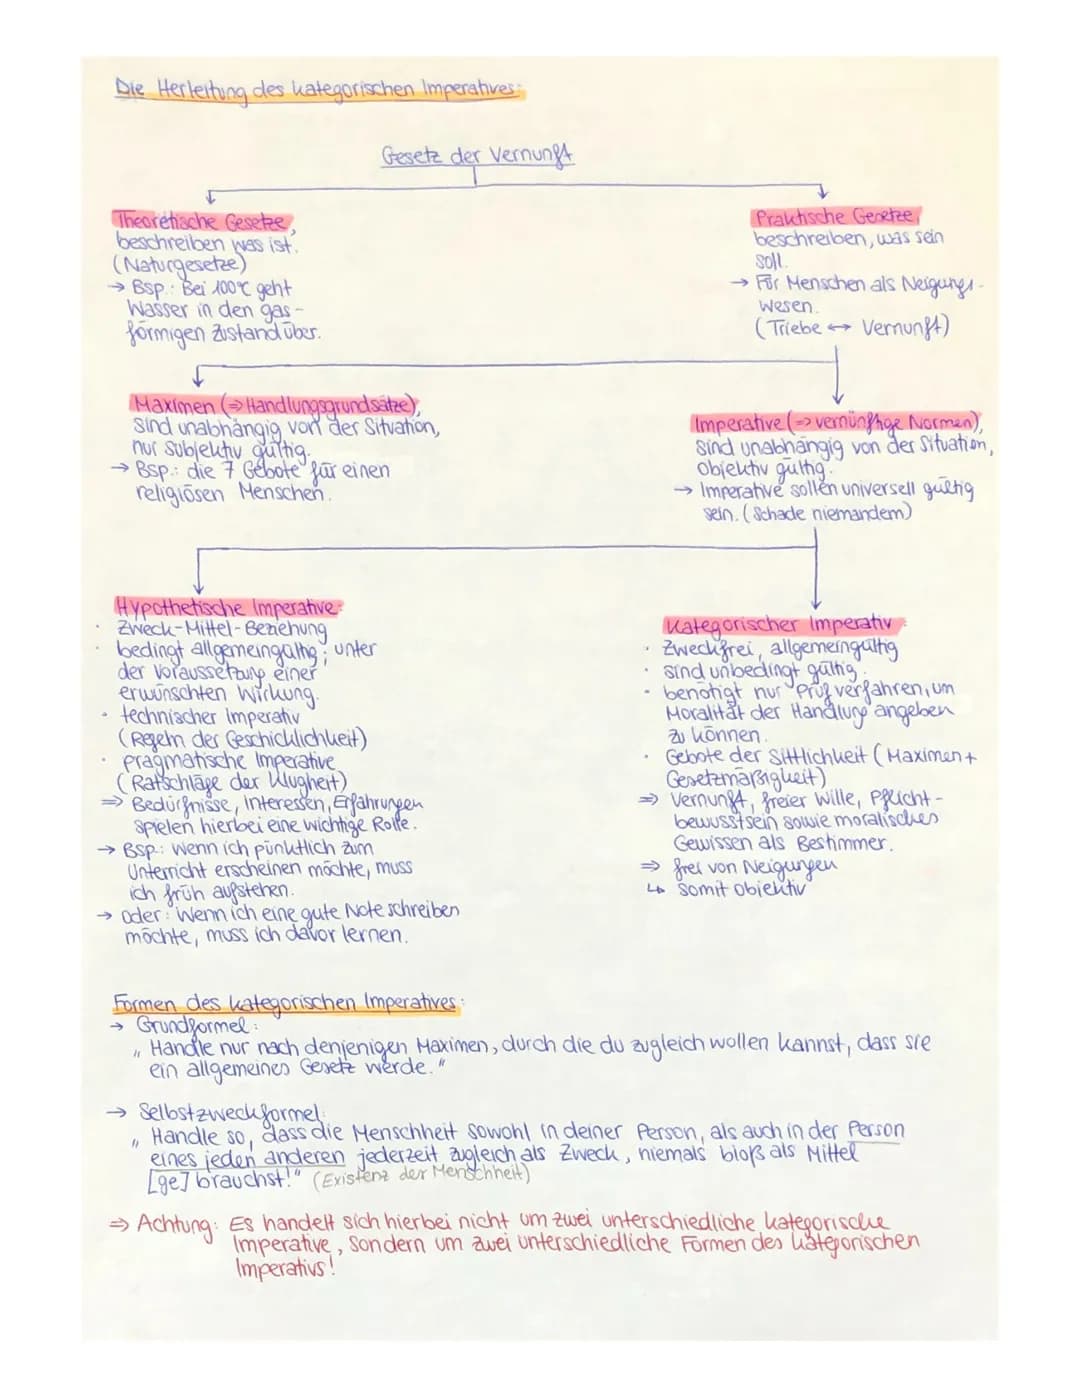 Die Herleitung des kategorischen Imperatives:
Gesetz der Vernunft
Theoretische Gesetze,
beschreiben was ist.
(Naturgesetze)
→ Bsp.: Bei 100°C geht
Wasser in den gas-
förmigen Zustand über.
Praktische Gesetze,
beschreiben, was sein
soll.
→ Für Menschen als Neigungs-
wesen.
(Triebe ↔ Vernunft)
Maximen (⇒ Handlungsgrundsätze),
sind unabhängig von der Situation,
nur subjektiv gültig.
→ Bsp.: die 7 Gebote für einen
religiösen Menschen.
Imperative (⇒ vernünftige Normen),
sind unabhängig von der Situation,
objektiv gültig.
→ Imperative sollen universell gültig
sein. (Schade niemandem)
Hypothetische Imperative:
· Zweck-Mittel-Beziehung
· bedingt allgemeingültig; unter
der Voraussetzung einer
erwünschten Wirkung.
· technischer Imperativ
(Regeln der Geschicklichkeit)
· pragmatische Imperative
(Ratschläge der Klugheit)
⇒ Bedürfnisse, Interessen, Erfahrungen
spielen hierbei eine wichtige Rolle.
→ Bsp.: Wenn ich pünktlich zum
Unterricht erscheinen möchte, muss
ich früh aufstehen.
→ oder: Wenn ich eine gute Note schreiben
möchte, muss ich davor lernen.
Kategorischer Imperativ:
· Zweckfrei, allgemeingültig
· sind unbedingt gültig.
· benötigt nur Prüfverfahren, um
Moralität der Handlung angeben
zu können.
· Gebote der Sittlichkeit (Maximen +
Gesetzmäßigkeit)
⇒ Vernunft, freier Wille, Pflicht-
bewusstsein sowie moralisches
Gewissen als Bestimmer.
⇒ frei von Neigungen
↳ somit objektiv
Formen des kategorischen Imperatives:
→ Grundformel:
„Handle nur nach denjenigen Maximen, durch die du zugleich wollen kannst, dass sie
ein allgemeines Gesetz werde."
→ Selbstzweckformel:
„Handle so, dass die Menschheit sowohl in deiner Person, als auch in der Person
eines jeden anderen jederzeit zugleich als Zweck, niemals bloß als Mittel
[ge]brauchst!" (Existenz der Menschheit)
⇒ Achtung: Es handelt sich hierbei nicht um zwei unterschiedliche kategorische
Imperative, sondern um zwei unterschiedliche Formen des kategorischen
Imperativs!